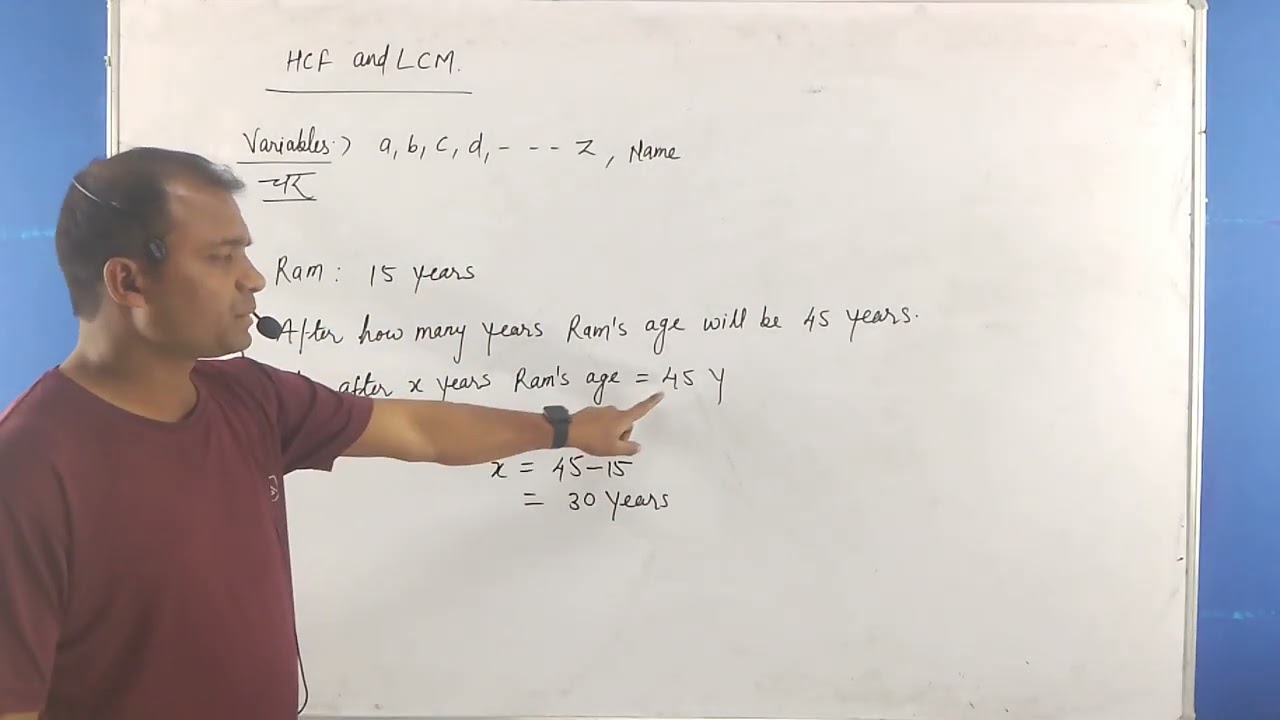 HCF and LCM.
Variables :> a, b, c, d, - - - z, Name
चर
Ram : 15 years
After how many years Ram's age will be 45 years.
after x years Ram's age = 45 Y
x = 45-15
= 30 Years